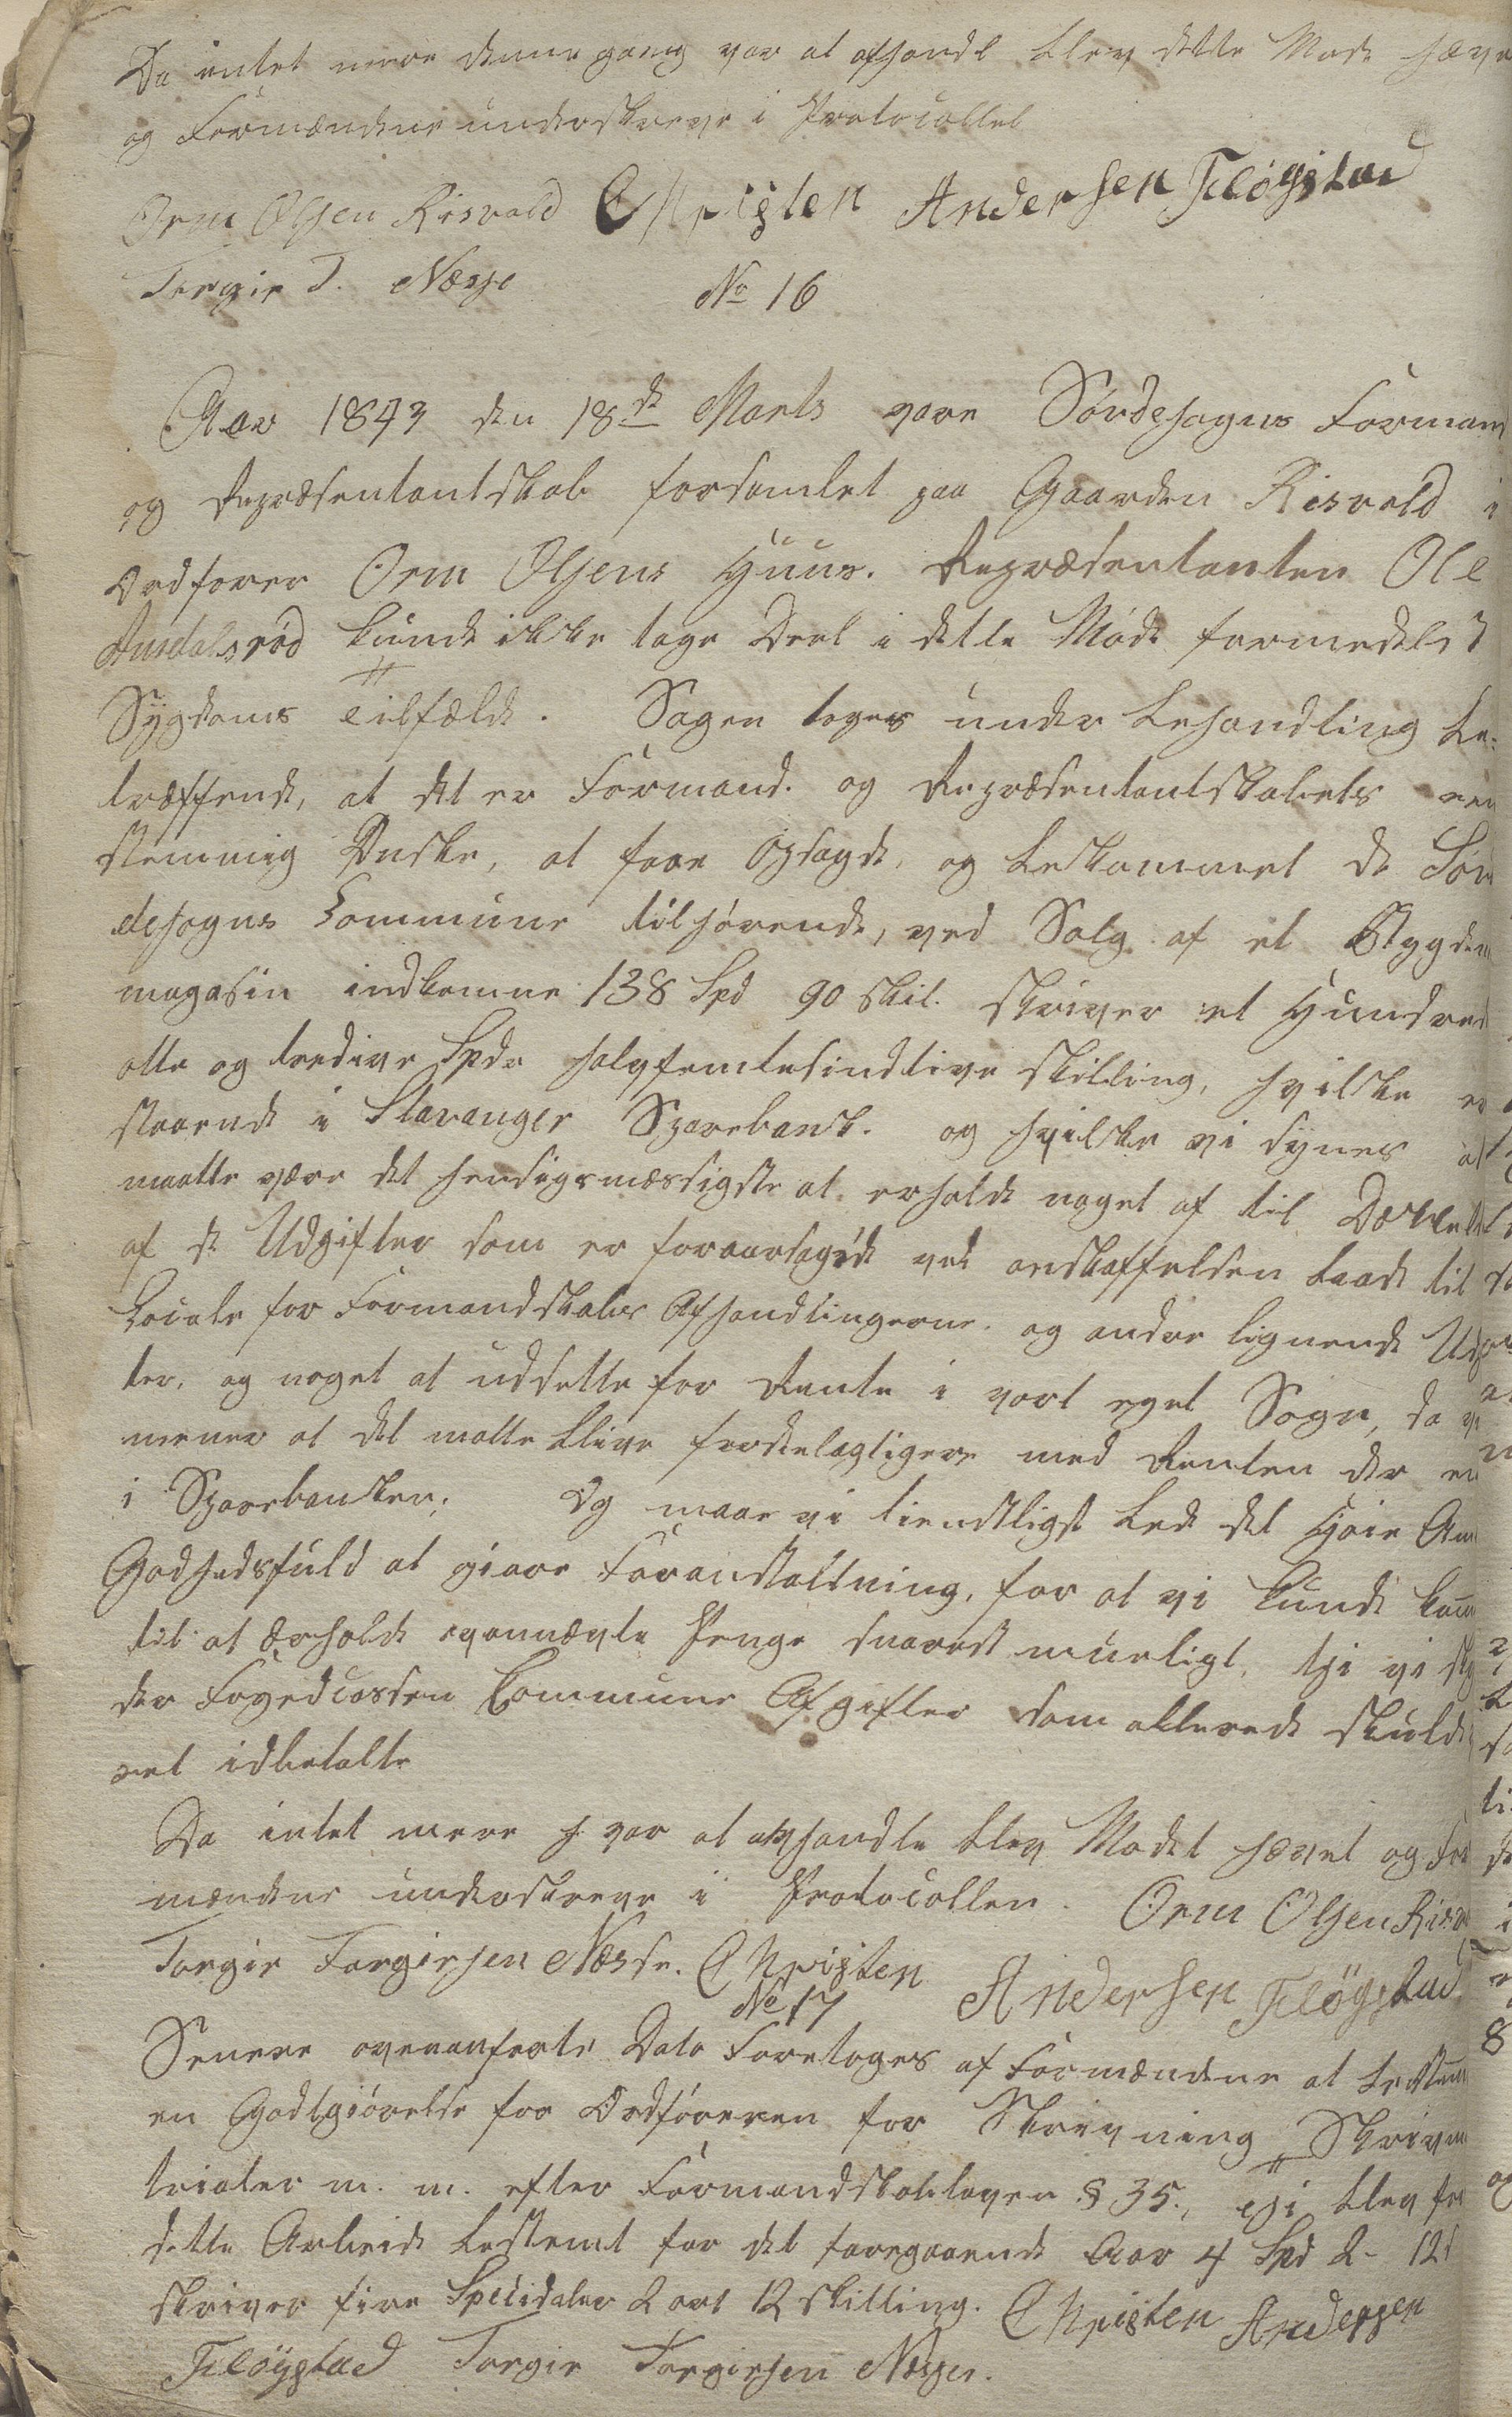 Da intet mere denne gang var at afhandl blev dette Møde hæve
og Formændene underskreve i Protocollet
Orm Olsen Risvold Christen Andersen Fløÿstad
Torgir T. Næsse
No 16
Aar 1843 den 18de Marts vare Søvdesogns Formand
og Repræsentantskab forsamlet paa Gaarden Risvold i
Ordfører Orm Olsens Huus. Repræsentanten Ole
kunde ikke tage Deel i dette Møde formedelst
Sygdoms Tilfælde. Sagen toges under behandling be-
træffende, at det er Formand. og Repræsentantskabets een
stemmig Ønske, at faae Opsagde, og bekommet de Søv
desogns Commune tilhørende, ved Salg af et Bygde
magasin indkomne 138 Spd 90 skil. skriver et Hundred
otte og tredive Spdr halvfemtesindtive skilling, hvilke er
staaende i Stavanger Sparebank. og hvilke vi synes at
maatte være det hensigsmæssigste at erholde noget af til Dækkelse
af de Udgifter som er foraarsagede ved anskaffelsen baade til
Locale for Formandskabs Afhandlingerne. og andre lignende Udgif
ter, og noget at udsætte for Rente i vort eget Sogn, da vi
mener at det matte blive fordelagtigere med Renten der en
i Sparebanken. Og maae vi tienstligst bede det Høie Amt
Godhedsfuld at giøre Foranstaltning, for at vi kunde kom
til at ærholde ovennævte Penge snarest mueligt, thi vi sky
der Fogedcassen Commune Afgifter som allerede skulde
vet idbetalte
Da intet mere h var at afhandle blev Mødet hævet og For
mændene underskreve i Protocollen. Orm Olsen Risvo
Torgir Torgirsen Næsse. Christen Andersen Fløÿstad
No 17
Senere ovenanførte Dato Foretoges af Formændene at bestem
en Godtgiørelse for Ordføreren for Skrivning Skrivma
trialer m. m. efter Formandskabsloven § 35., thi blev for
dette Arbeide bestemt for det foregaaende Aar 4 Spd 2- 12s
skriver fire Speeisdaler 2 ort 12 skilling. Christen Andersen
Fløÿstad Torgir Torgirsen Næsse.